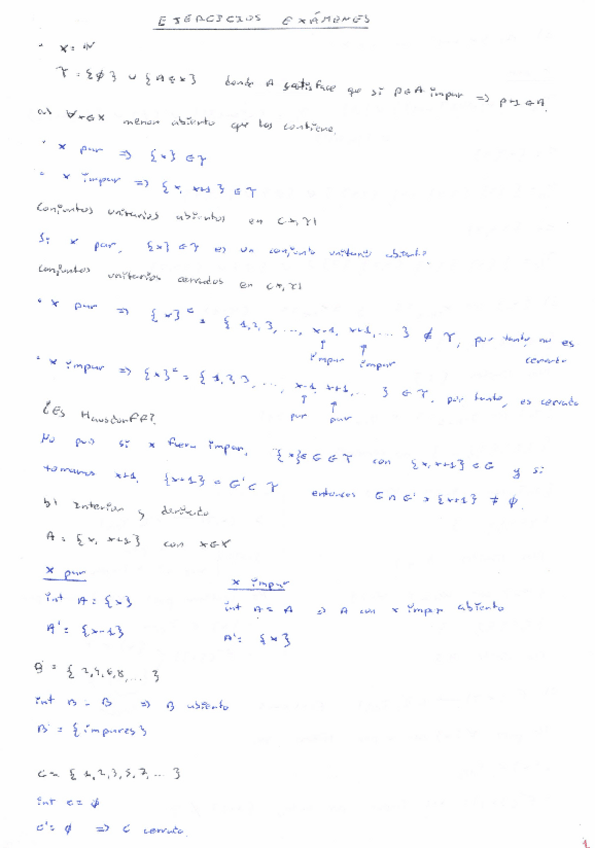 EJERCICIOS EXÁMENES
• X = ℕ
τ = {∅} ∪ {A ⊆ X} donde A satisface que si p∈A impar => p+1 ∈ A.
a) ∀x∈X menor abierto que los contiene.
• x par => {x} ∈ τ
• x impar => {x, x+1} ∈ τ
Conjuntos unitarios abiertos en (X, τ)
Si x par, {x} ∈ τ es un conjunto unitario abierto.
Conjuntos unitarios cerrados en (X, τ)
• x par => {x}ᶜ = {1,2,3, ..., x-1, x+1, ...} ∉ τ, por tanto no es
impar impar cerrado
• x impar => {x}ᶜ = {1,2,3, ..., x-1, x+1, ...} ∈ τ, por tanto, es cerrado
par par
¿Es Hausdorff?
No pues si x fuera impar, {x}∈ G ∈ τ con {x, x+1} ∈ G y si
tomamos x+1, {x+1} = G' ⊂ τ entonces G ∩ G' = {x+1} ≠ ∅.
b) Interior y derivado
A = {x, x+1} con x∈X
x par x impar
int A = {x} int A = A => A con x impar abierto
A' = {x-1} A' = {x}
B = {2,4,6,8, ...}
int B = B => B abierto
B' = {impares}
C = {1,2,3,5,7, ...}
int C = ∅
C' = ∅ => C cerrado.
1